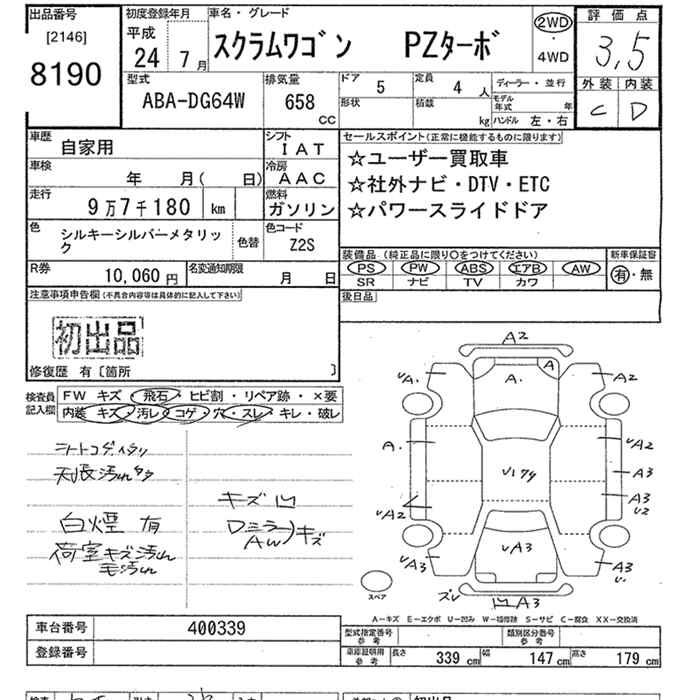 出品番号
[2146]
8190
初度登録年月
平成
24年7月
車名・グレード
スクラムワゴン PZターボ
2WD
・
4WD
評価点
3,5
外装 内装
C D
型式
ABA-DG64W
排気量
658
CC
ドア 5
形状
定員 4 人
積載 kg
ディーラー・並行
モデル年式 年
ハンドル 左・右
車歴 自家用
シフト
IAT
車検 年 月( 日)
冷房
AAC
走行 9万7千180 km
燃料
ガソリン
色 シルキーシルバーメタリック
色替
色コード
Z2S
R券 10,060円
名変通知期限 月 日
セールスポイント(正常に機能するものに限ります)
☆ユーザー買取車
☆社外ナビ・DTV・ETC
☆パワースライドドア
装備品(純正品に限り○をつけてください)
新車保証書
PS PW ABS エアB AW
有・無
SR ナビ TV カワ
後日品
注意事項申告欄(不具合内容等は具体的に記入して下さい)
初出品
修復歴 有〔箇所 〕
検査員記入欄
FW キズ・飛石・ヒビ割・リペア跡・×要
内装 キズ・汚レ・コゲ・穴・スレ・キレ・破レ
シートコゲ
天張汚れ
白煙 有
荷室キズ汚れ
毛汚れ
キズ凹
Dミラー
AW
キズ
A2
UA.
A.
A
A2
A.
U17タ
UA2
A3
A3
U2
UA2
UA3
UA3
A3
U.
ズレ
凹A3
スペア
A-キズ E-エクボ U-凹み W-補修跡 S-サビ C-腐食 XX-交換済
車台番号 400339
登録番号
型式指定番号
参考
類別区分番号
参考
車庫証明用
参考
長さ 339 cm
幅 147 cm
高さ 179 cm
初出品